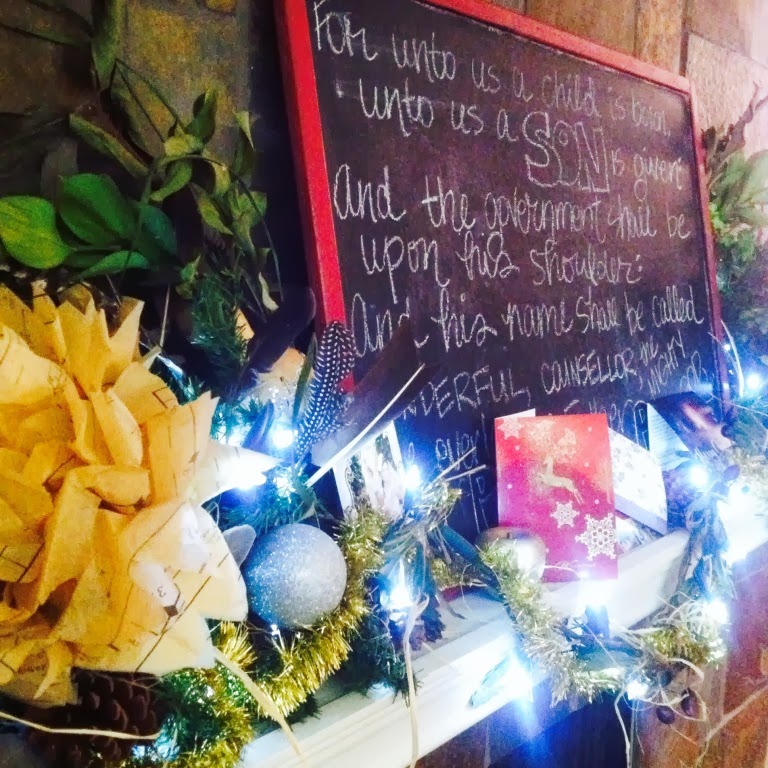 For unto us a child is born,
unto us a SON is given
And the government shall be
upon his shoulder:
And his name shall be called
COUNSELLOR, THE